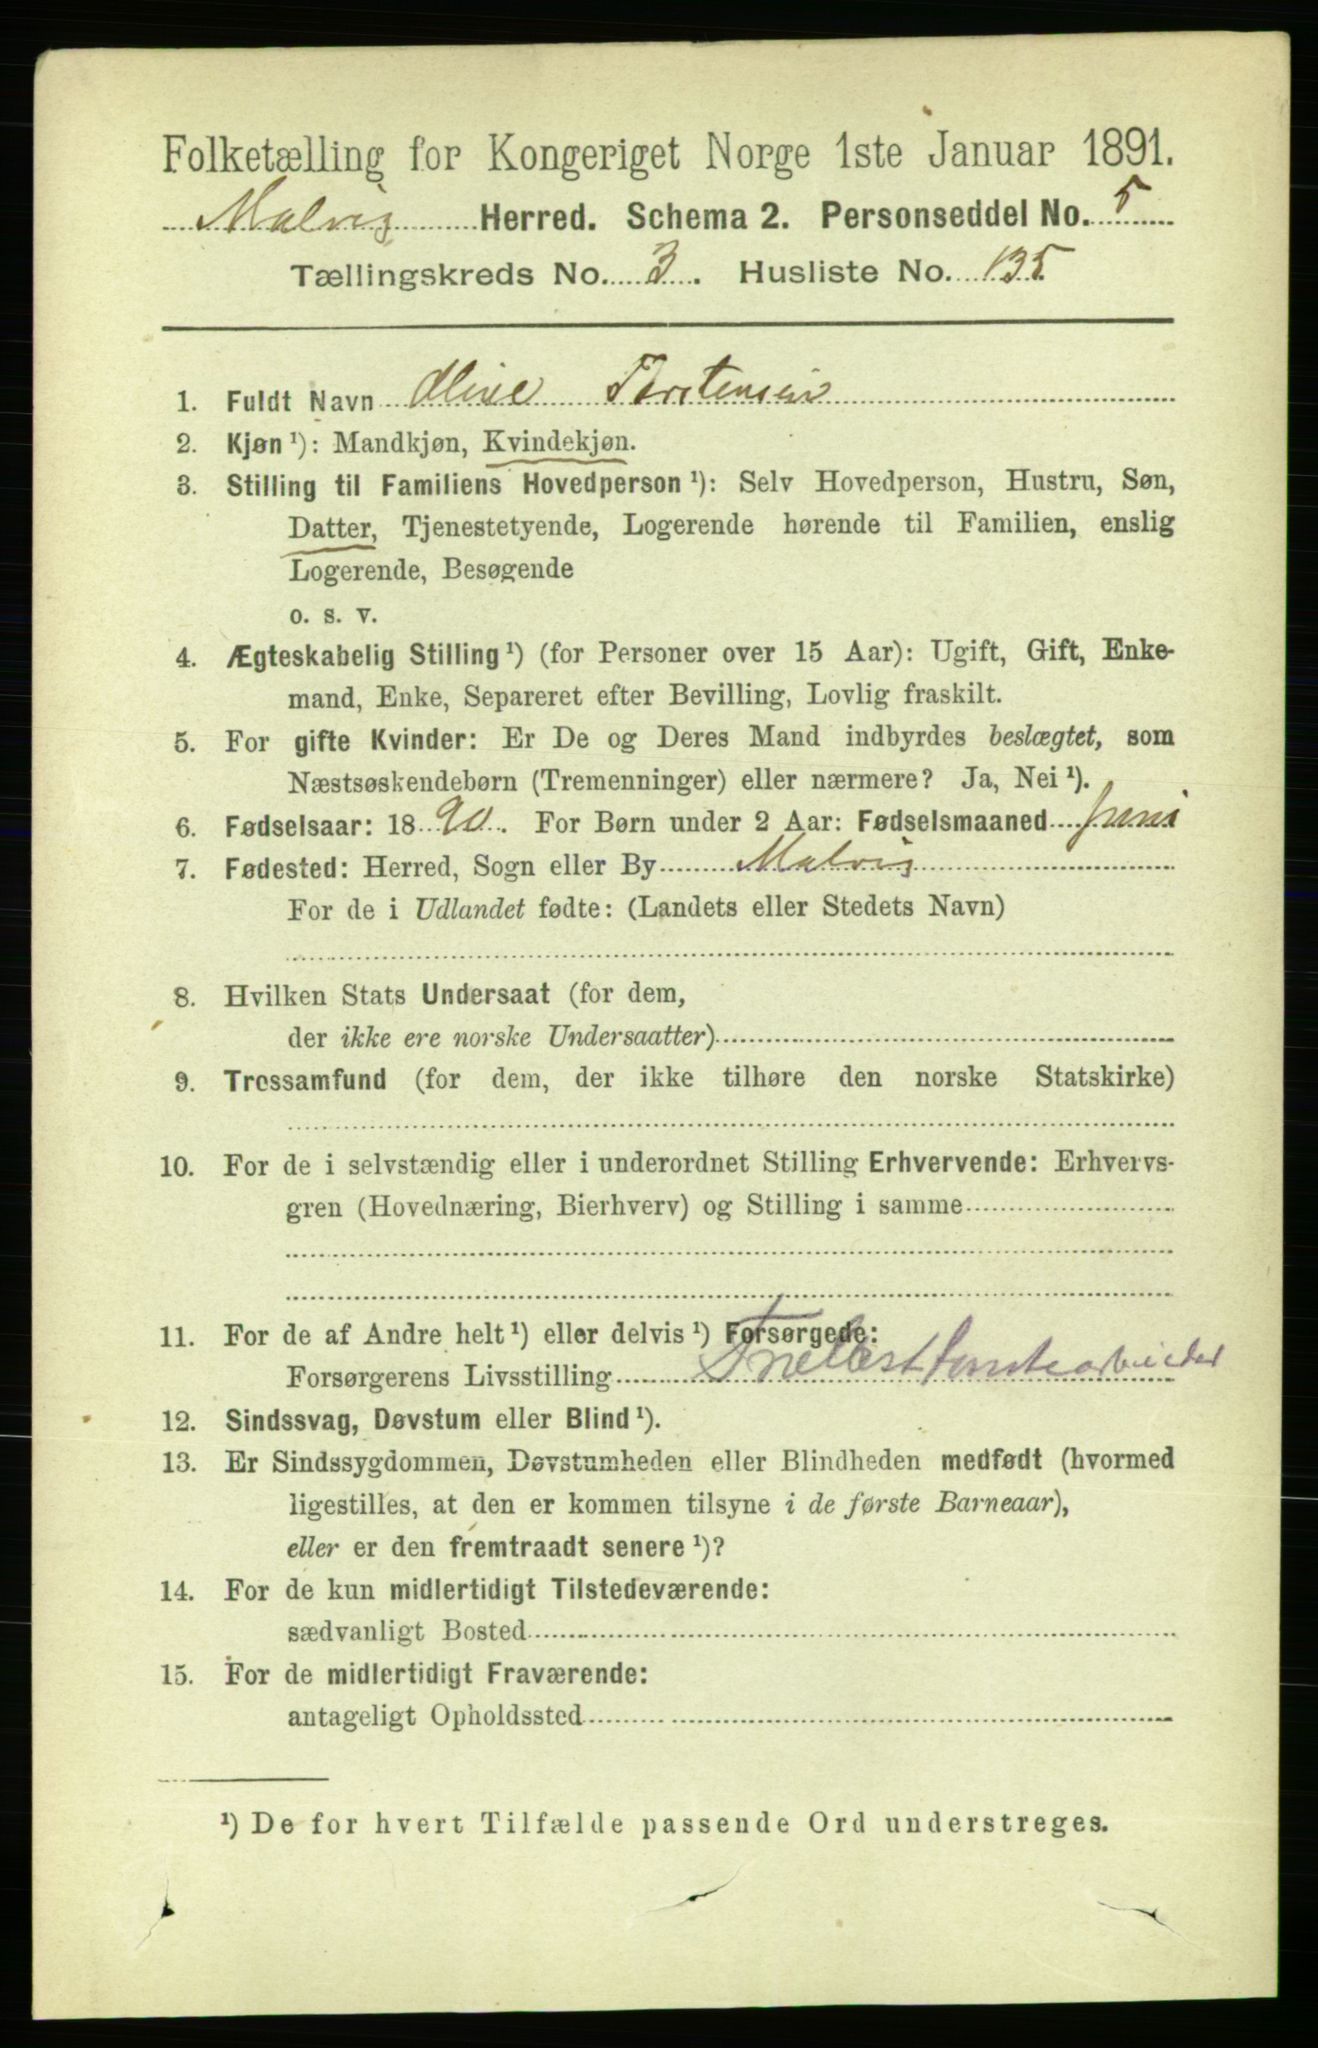 Folketælling for Kongeriget Norge 1ste Januar 1891.
Malvig Herred. Schema 2. Personseddel No. 5
Tællingskreds No. 3. Husliste No. 135
1. Fuldt Navn Oline Torstensen
2. Kjøn ¹): Mandkjøn, Kvindekjøn.
3. Stilling til Familiens Hovedperson ¹): Selv Hovedperson, Hustru, Søn,
Datter, Tjenestetyende, Logerende hørende til Familien, enslig
Logerende, Besøgende
o. s. v.
4. Ægteskabelig Stilling ¹) (for Personer over 15 Aar): Ugift, Gift, Enke-
mand, Enke, Separeret efter Bevilling, Lovlig fraskilt.
5. For gifte Kvinder: Er De og Deres Mand indbyrdes beslægtet, som
Næstsøskendebørn (Tremenninger) eller nærmere? Ja, Nei ¹).
6. Fødselsaar: 1890. For Børn under 2 Aar: Fødselsmaaned juni
7. Fødested: Herred, Sogn eller By Malvig
For de i Udlandet fødte: (Landets eller Stedets Navn)
8. Hvilken Stats Undersaat (for dem,
der ikke ere norske Undersaatter)
9. Trossamfund (for dem, der ikke tilhøre den norske Statskirke)
10. For de i selvstændig eller i underordnet Stilling Erhvervende: Erhvervs-
gren (Hovednæring, Bierhverv) og Stilling i samme
11. For de af Andre helt ¹) eller delvis ¹) Forsørgede:
Forsørgerens Livsstilling
12. Sindssvag, Døvstum eller Blind ¹).
13. Er Sindssygdommen, Døvstumheden eller Blindheden medfødt (hvormed
ligestilles, at den er kommen tilsyne i de første Barneaar),
eller er den fremtraadt senere ¹)?
14. For de kun midlertidigt Tilstedeværende:
sædvanligt Bosted
15. For de midlertidigt Fraværende:
antageligt Opholdssted
¹) De for hvert Tilfælde passende Ord understreges.